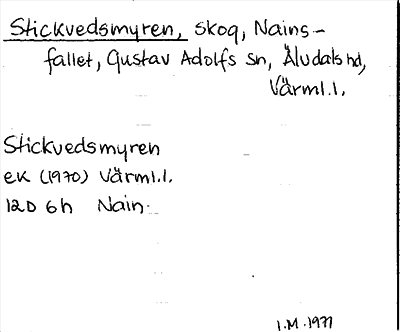 Stickvedsmyren, skog, Nains-
fallet, Gustav Adolfs sn, Älvdals hd,
Värml.l.
Stickvedsmyren
ek (1970) Värml.l.
12D 6h Nain.
I.M. 1977